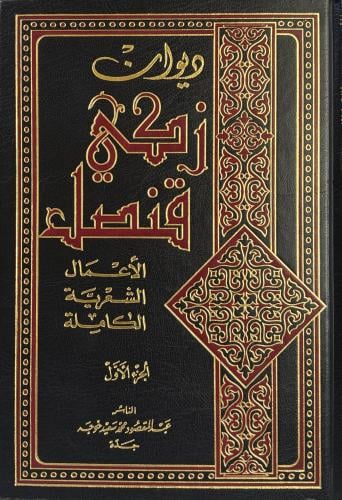 ديوان
زكي
قنصل
الأعمال
الشعرية
الكاملة
الجزء الأول
الناشر
عبد المقصود محمد سعيد خوجه
جدة